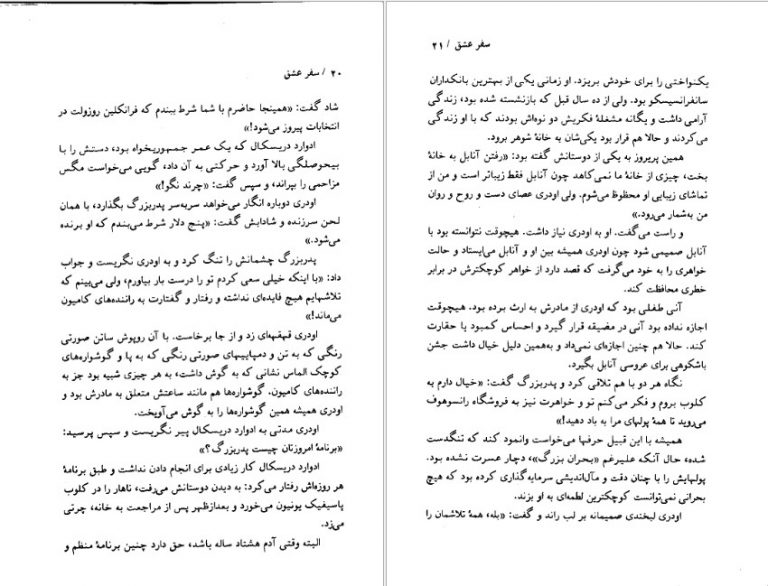 ۲۰ / سفر عشق
شاد گفت: «همینجا حاضرم با شما شرط ببندم که فرانکلین روزولت در
انتخابات پیروز می‌شود!»
ادوارد دریسکال که یک عمر جمهوریخواه بود، دستش را با
بیحوصلگی بالا آورد و حرکتی به آن داد، گویی می‌خواست مگس
مزاحمی را بپراند، و سپس گفت: «چرند نگو!»
اودری دوباره انگار می‌خواهد سربه‌سر پدربزرگ بگذارد، با همان
لحن سرزنده و شادابش گفت: «پنج دلار شرط می‌بندم که او برنده
می‌شود.»
پدربزرگ چشمانش را تنگ کرد و به اودری نگریست و جواب
داد: «با اینکه خیلی سعی کردم تو را درست بار بیاورم، ولی می‌بینم که
تلاشهایم هیچ فایده‌ای نداشته و رفتار و گفتارت به راننده‌های کامیون
می‌ماند!»
اودری قهقهه‌ای زد و از جا برخاست. با آن روپوش ساتن صورتی
رنگی که به تن و دمپاییهای صورتی رنگی که به پا و گوشواره‌های
کوچک الماس نشانی که به گوش داشت، به هر چیزی شبیه بود جز به
راننده‌های کامیون. گوشواره‌ها هم مانند ساعتش متعلق به مادرش بود و
اودری همیشه همین گوشواره‌ها را به گوش می‌آویخت.
اودری مدتی به ادوارد دریسکال پیر نگریست و سپس پرسید:
«برنامهٔ امروزتان چیست پدربزرگ؟»
ادوارد دریسکال کار زیادی برای انجام دادن نداشت و طبق برنامهٔ
هر روزه‌اش رفتار می‌کرد: به دیدن دوستانش می‌رفت، ناهار را در کلوب
پاسیفیک یونیون می‌خورد و بعدازظهر پس از مراجعت به خانه، چرتی
می‌زد.
البته وقتی آدم هشتاد ساله باشد، حق دارد چنین برنامهٔ منظم و
سفر عشق / ۲۱
یکنواختی را برای خودش بریزد. او زمانی یکی از بهترین بانکداران
سانفرانسیسکو بود. ولی از ده سال قبل که بازنشسته شده بود، زندگی
آرامی داشت و یگانه مشغلهٔ فکریش دو نوه‌اش بودند که با او زندگی
می‌کردند و حالا هم قرار بود یکی‌شان به خانهٔ شوهر برود.
همین پریروز به یکی از دوستانش گفته بود: «رفتن آنابل به خانهٔ
بخت، چیزی از خانهٔ ما نمی‌کاهد چون آنابل فقط زیباتر است و من از
تماشای زیبایی او محظوظ می‌شوم. ولی اودری عصای دست و روح و روان
من به‌شمار می‌رود.»
و راست می‌گفت. او به اودری نیاز داشت. هیچوقت نتوانسته بود با
آنابل صمیمی شود چون اودری همیشه بین او و آنابل می‌ایستاد و حالت
خواهری را به خود می‌گرفت که قصد دارد از خواهر کوچکترش در برابر
خطری محافظت کند.
آنی طفلی بود که اودری از مادرش به ارث برده بود. هیچوقت
اجازه نداده بود آنی در مضیقه قرار گیرد و احساس کمبود یا حقارت
کند. حالا هم چنین اجازه‌ای نمی‌داد و به‌همین دلیل خیال داشت جشن
باشکوهی برای عروسی آنابل بگیرد.
نگاه هر دو با هم تلاقی کرد و پدربزرگ گفت: «خیال دارم به
کلوب بروم و فکر می‌کنم تو و خواهرت نیز به فروشگاه رانسوهوف
می‌روید تا همهٔ پولهای مرا به باد دهید!»
همیشه با این قبیل حرفها می‌خواست وانمود کند که تنگدست
شده، حال آنکه علیرغم «بحران بزرگ»، دچار عسرت نشده بود.
پولهایش را با چنان دقت و مآل‌اندیشی سرمایه‌گذاری کرده بود که هیچ
بحرانی نمی‌توانست کوچکترین لطمه‌ای به او بزند.
اودری لبخندی صمیمانه بر لب راند و گفت: «بله، همهٔ تلاشمان را